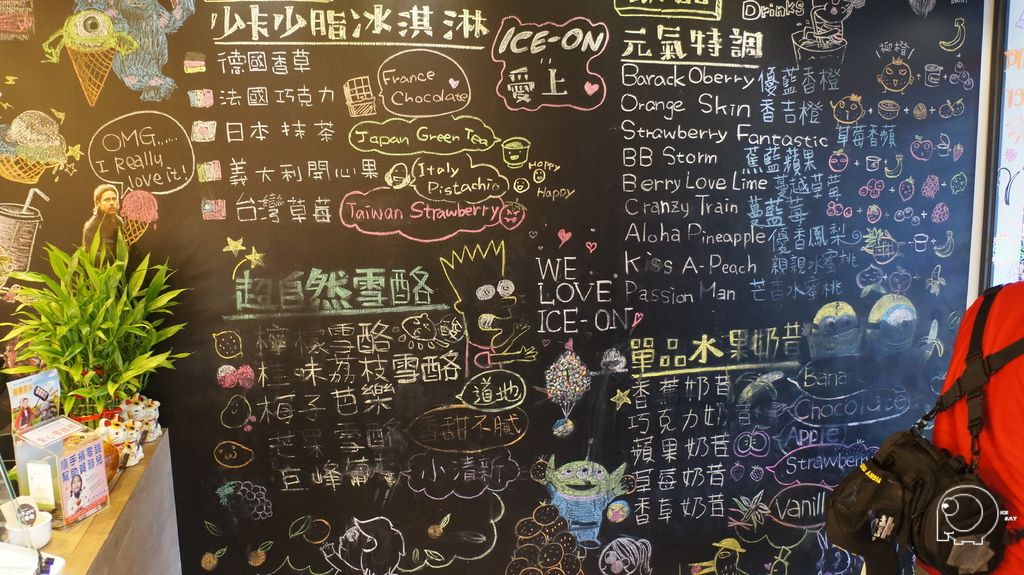 少卡少脂冰淇淋
德國香草
法國巧克力
France Chocolate
日本抹茶
Japan Green Tea
義大利開心果
Italy Pistachio
Happy
Happy
台灣草莓
Taiwan Strawberry
OMG.....
I Really
love it!
ICE-ON
愛上
WE
LOVE
ICE-ON
超自然雪酪
檸檬雪酪
荔枝雪酪
道地
梅子芭樂
甜不膩
芒果雪酪
小清新
巨峰
Drinks
元氣特調
Barack Oberry 優藍香橙
Orange Skin 香吉橙
Strawberry Fantastic 草莓香蘋
BB Storm 蕉藍蘋果
Berry Love Lime 蔓越草莓
Cranzy Train 蔓藍莓
Aloha Pineapple 優香鳳梨
Kiss A-Peach 親親水蜜桃
Passion Man 芒香水蜜桃
柳橙!
單品水果奶昔
香蕉奶昔
Bana
巧克力奶昔
Chocolate
蘋果奶昔
Apple
草莓奶昔
Strawberry
香草奶昔
Vanill
順手捐零錢